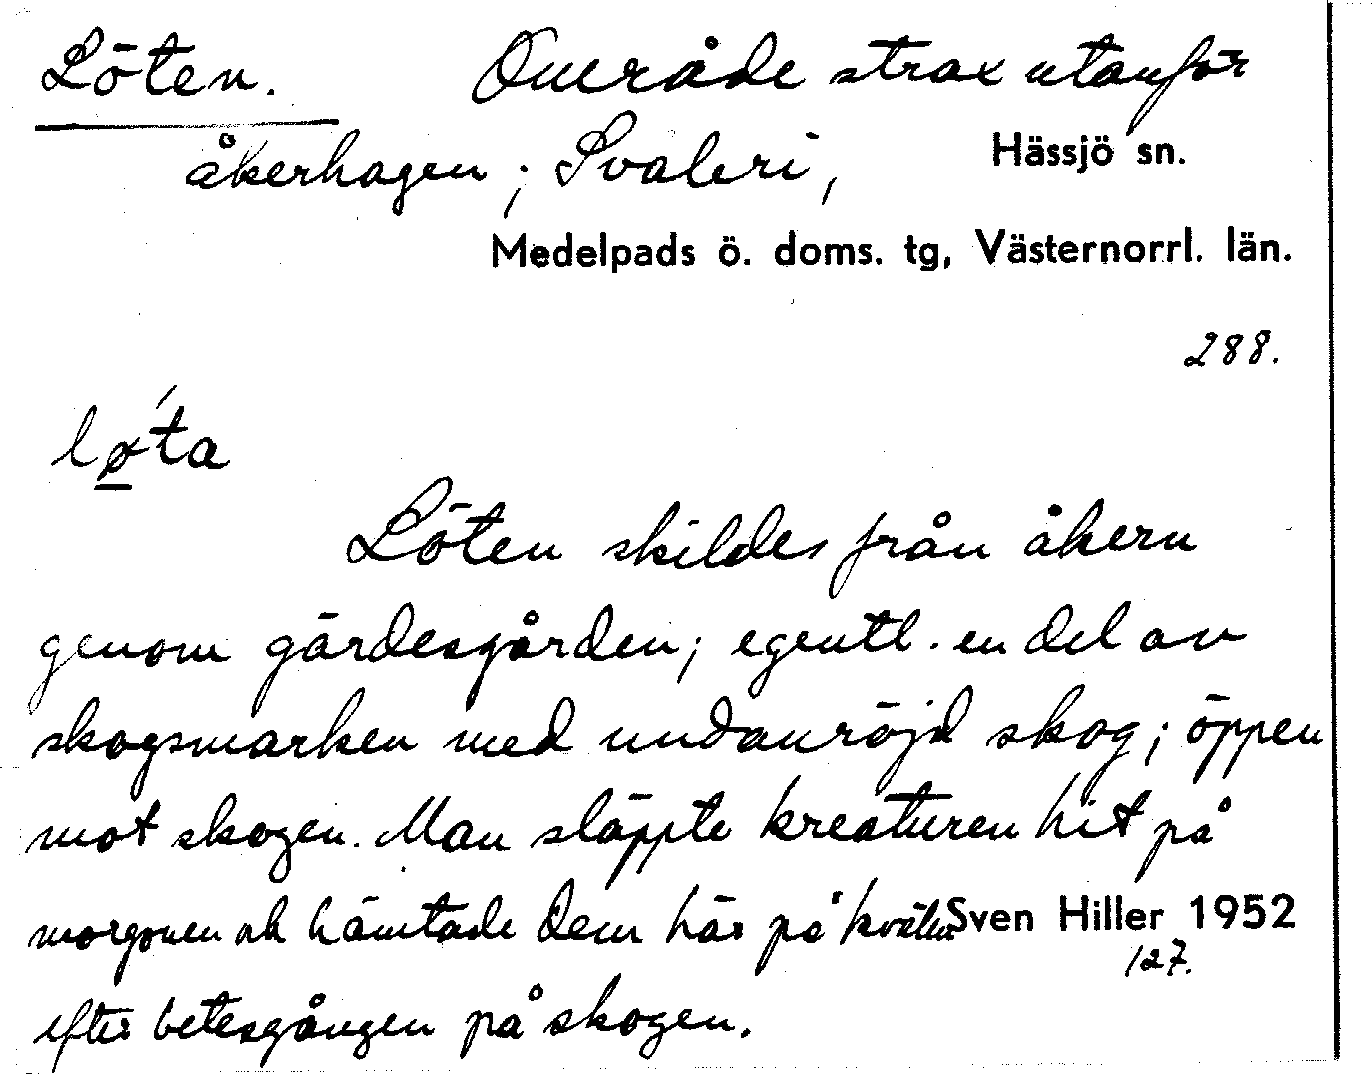 Löten. Område strax utanför
åkerhagen; Svaleri, Hässjö sn.
Medelpads ö. doms. tg, Västernorrl. län.
288.
lø´ta
Löten skildes från åkern
genom gärdesgården; egentl. en del av
skogsmarken med undanröjd skog; öppen
mot skogen. Man släppte kreaturen hit på
morgonen och hämtade dem här på kvällen Sven Hiller 1952
127.
efter betesgången på skogen.